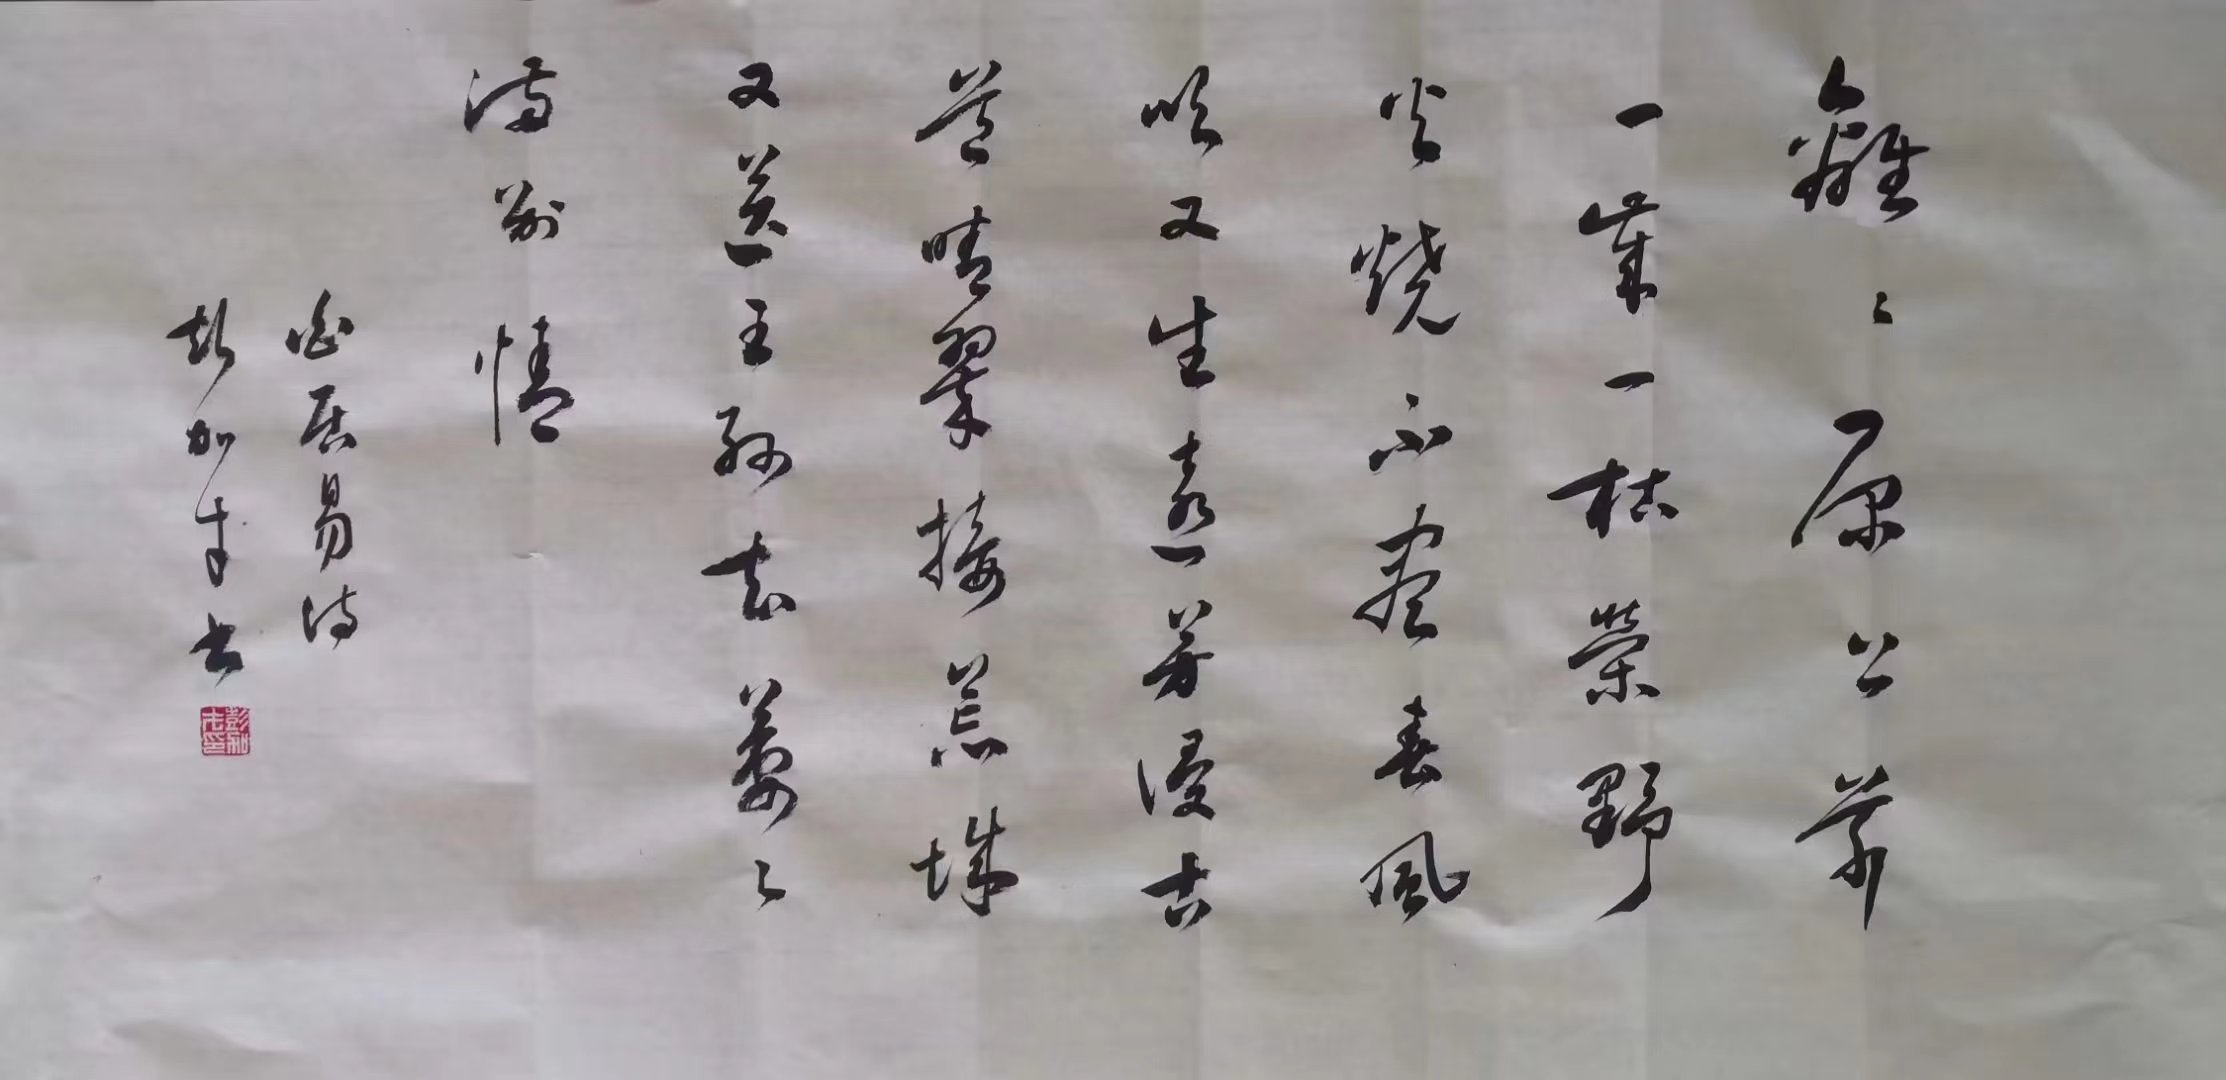 離々原上草
一歲一枯榮野
火燒不盡春風
吹又生遠芳侵古
道晴翠接荒城
又送王孫去萋々
滿別情
白居易詩
彭加书
彭加印